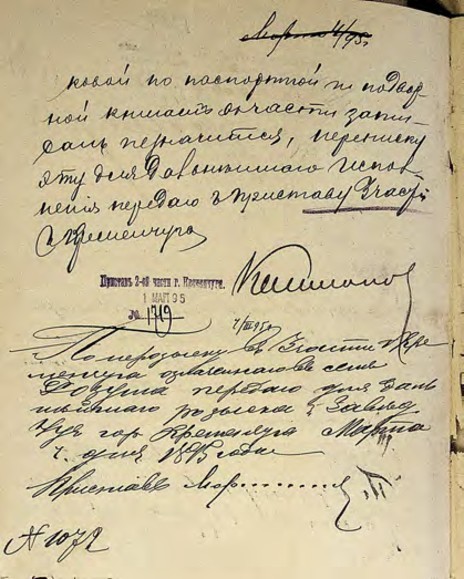 Марта 4/95 г.
ковой по паспортной и подвор-
ной книгамъ части запи-
санъ незначится, переписку
эту для дальнѣйшаго испол-
ненія передаю Г. Приставу 3 части
г. Кременчуга
Приставъ 2-ой части г. Кременчуга.
1 МАР 95
№ 1719
4/III 95 г.
По розыску въ 3 части г. Кре
менчуга
передаю для даль
нѣйшаго розыска Г. Завѣд
гор. Кременчуга Марта
4 дня 1895 года
Приставъ
N 1072